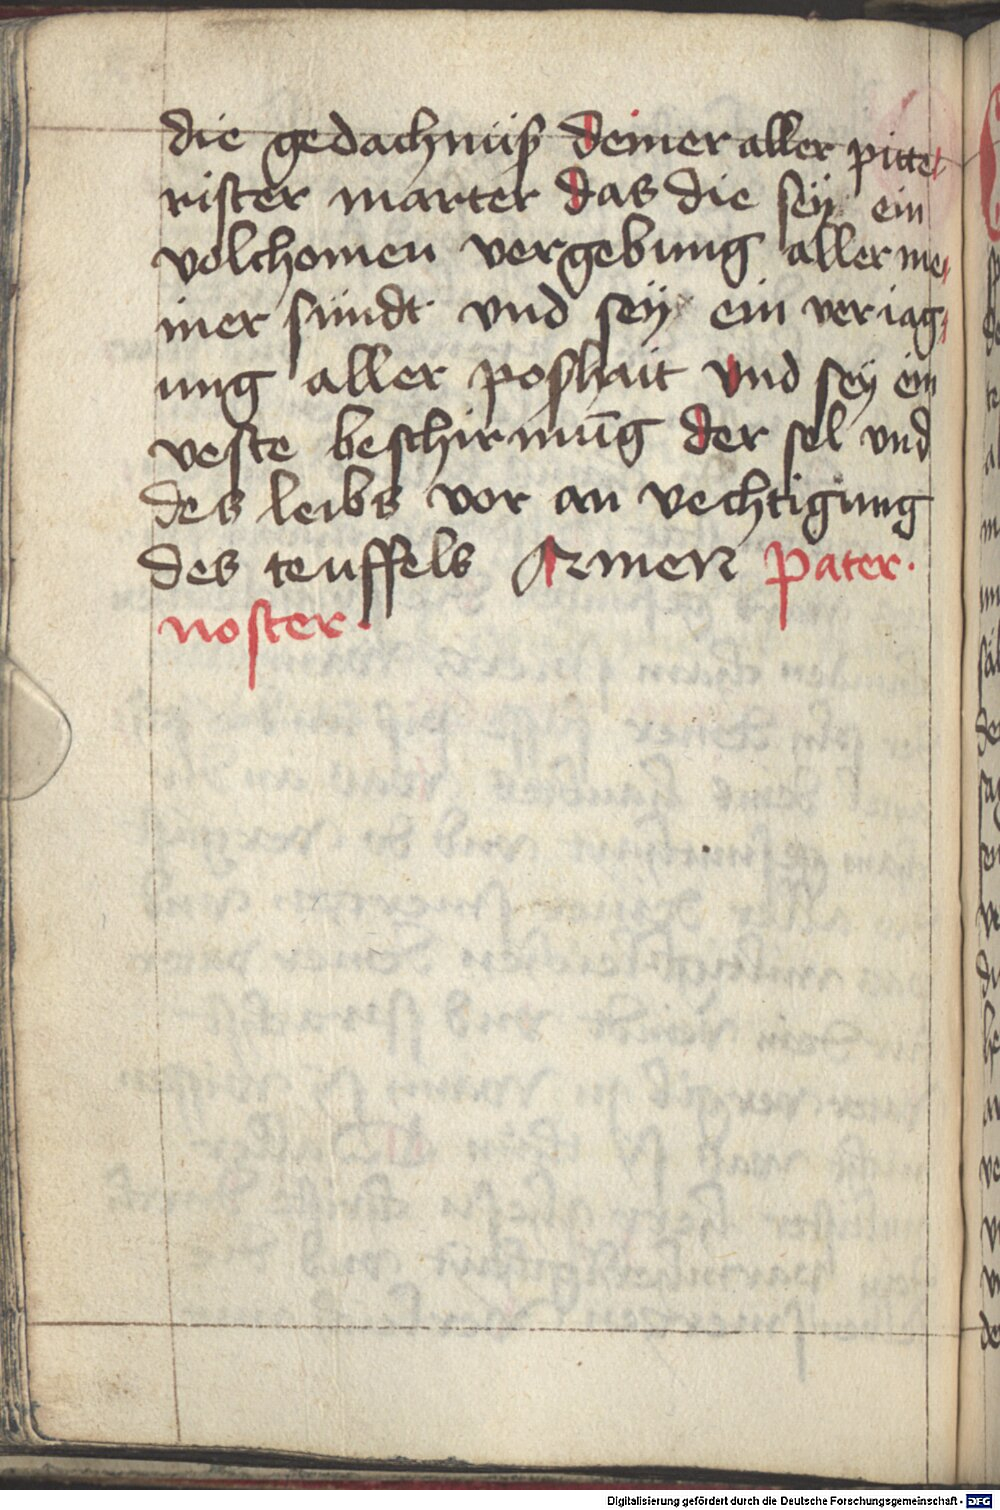 die gedachnüß deiner aller pitte
rister marter das die seÿ ein
volchomen vergebung aller me
iner sündt vnd seÿ ein veriag
ung aller poshait vnd seÿ ein
veste beschirmūg der sel vnd
des leibs vor an vechtigung
des teuffels Armen Pater
noster
Digitalisierung gefördert durch die Deutsche Forschungsgemeinschaft - DFG